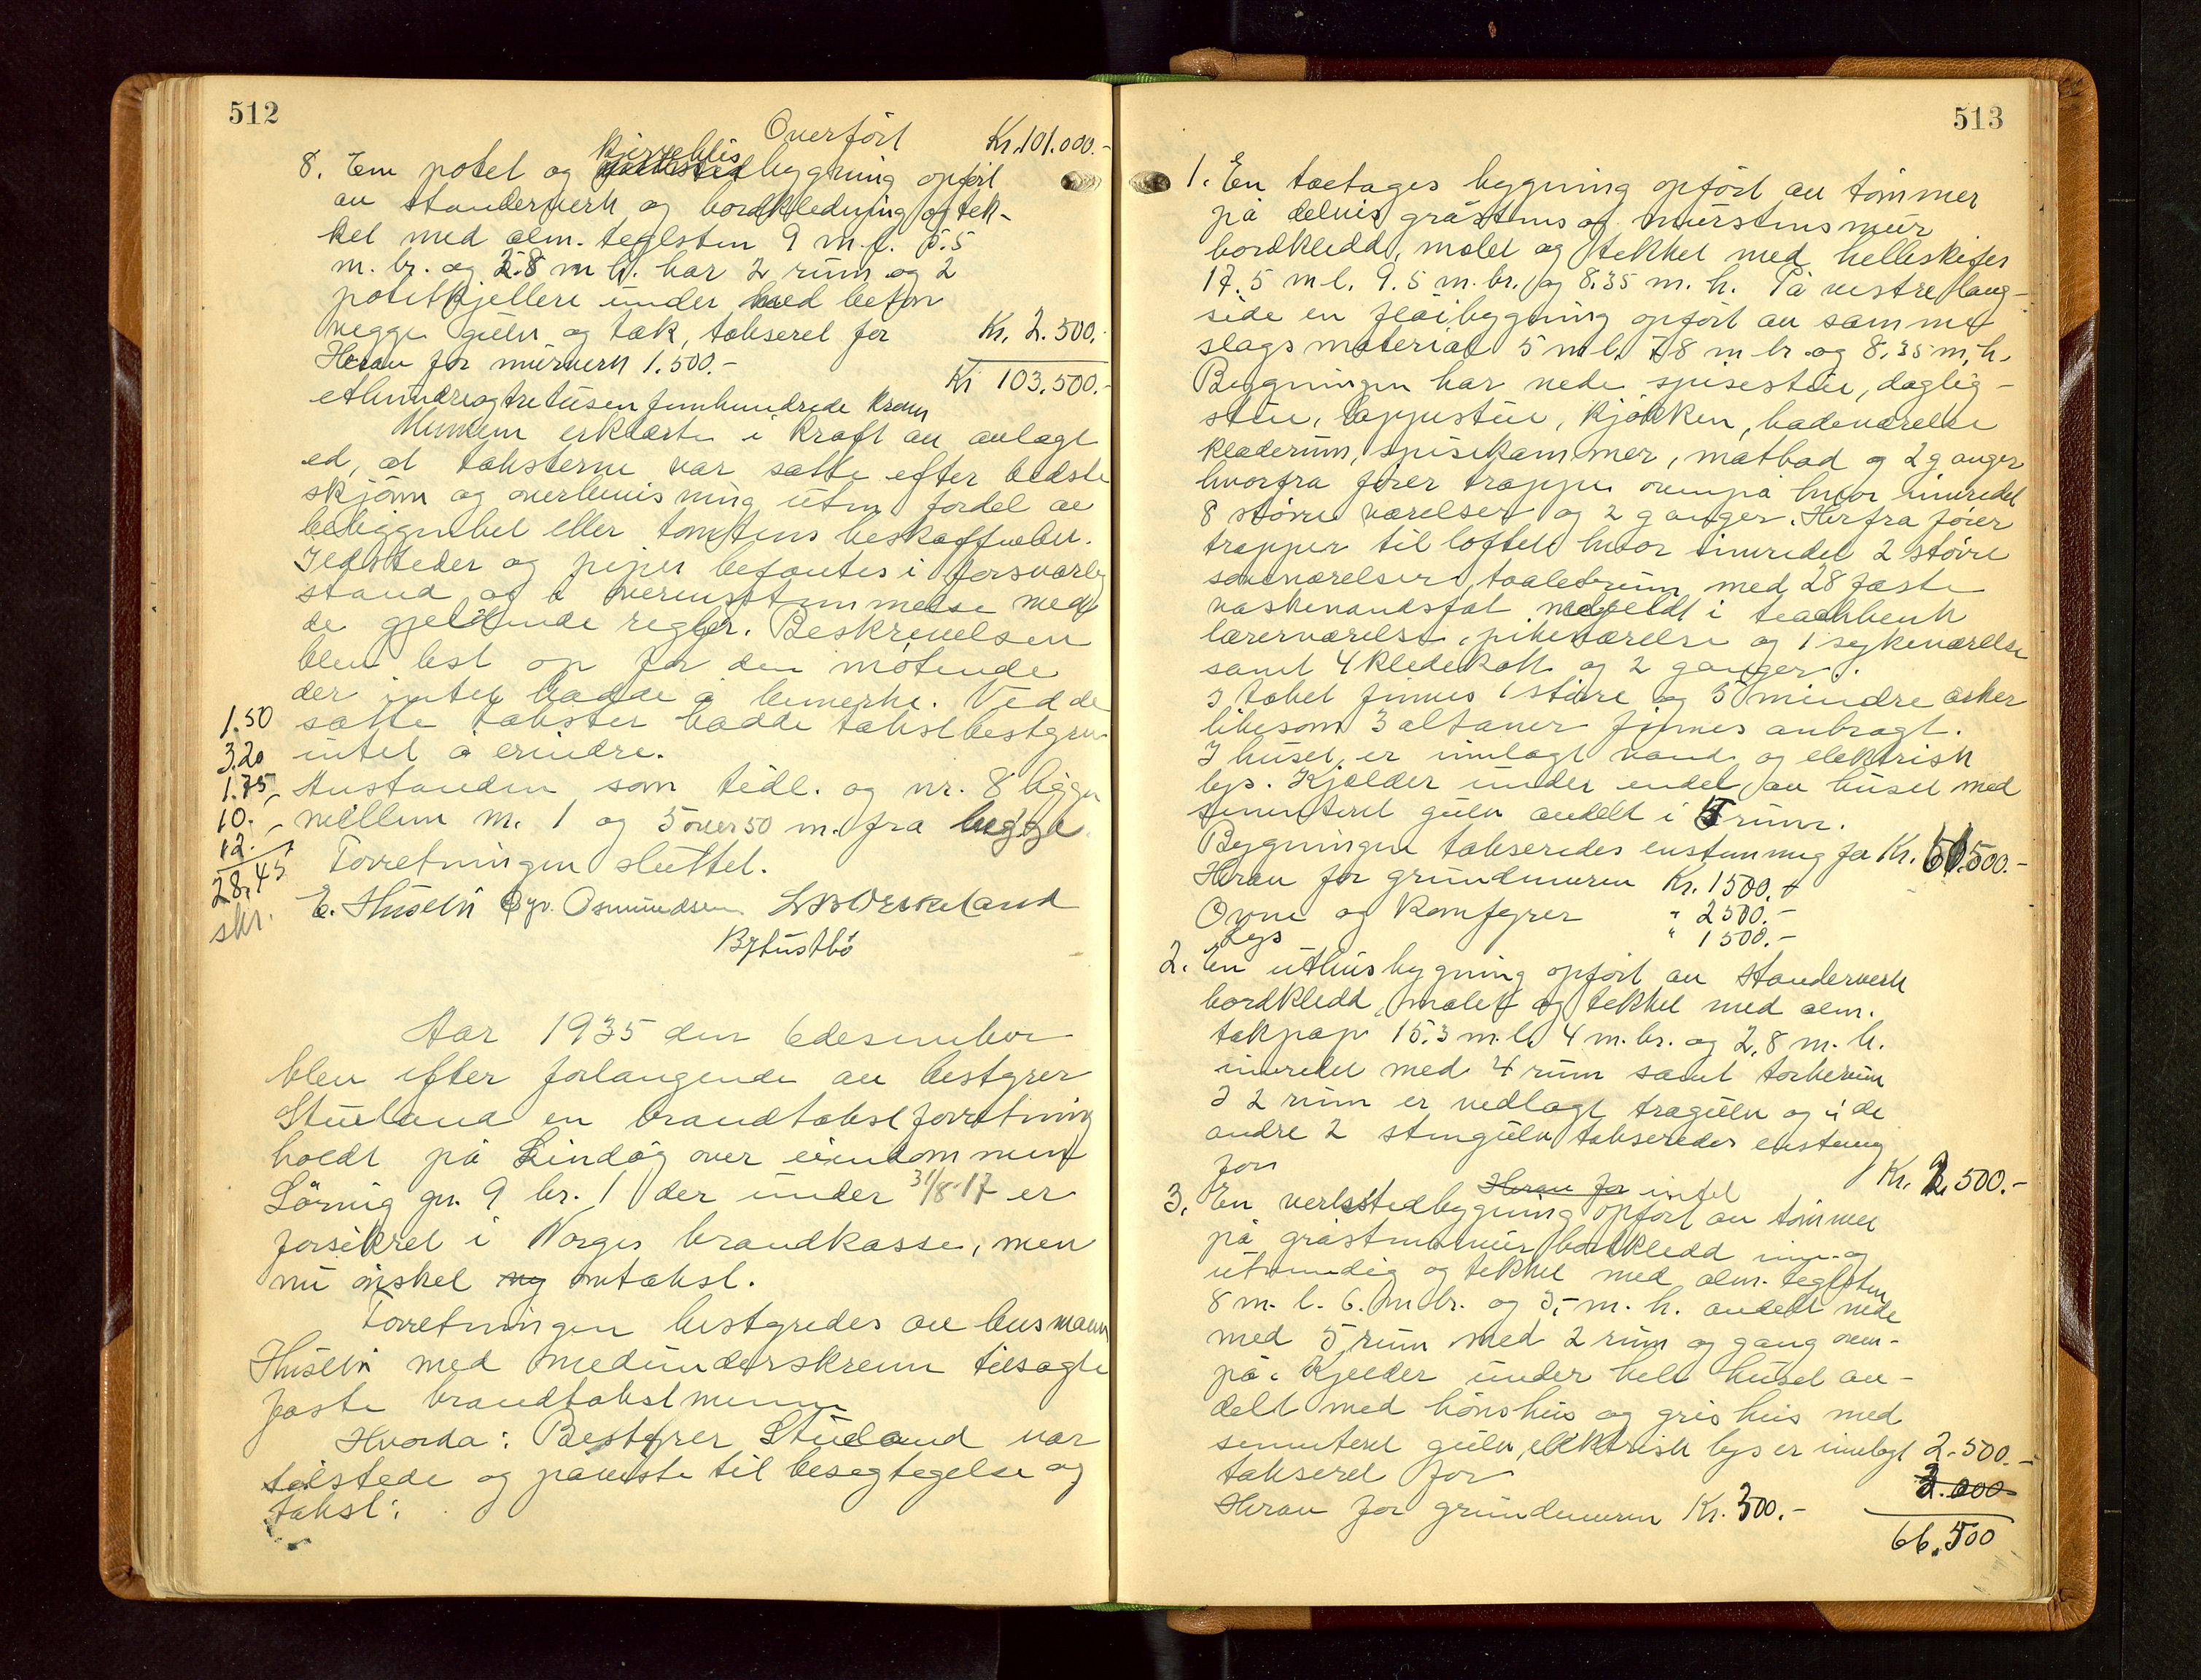 512
Overført Kr. 101.000.-
8. Em potet og bygning opført
av standerverk og bordkledning og tek-
ket med alm. teglsten 9 m. l. 5.5
m. br. og 2.8 m h. har 2 rum og 2
potetkjellere under med beton
vegge gulv og tak, takseret for Kr. 2.500.-
Herav for murverk 1.500.-
Kr 103.500.-
ethundreogtretusen femhundrede kroner
erklærte i kraft av avlagt
ed, at taksterne var satte efter bedste
skjøn og overbevisning uten fordel av
beliggenhet eller tomtens beskaffenhet.
Ildsteder og piper befantes i forsvarlig
stand og i overensstemmelse med
de gjeldende regler. Beskrivelsen
blev lest op for den møtende
der intet hadde å bemerke. Ved de
satte takster hadde takstbestyrer
intet å erindre.
Avstanden som tidl. og nr. 8 ligger
mellem nr. 1 og 5 over 50 m. fra begge.
Forretningen sluttet.
1.50
3.20
1.75
10.-
12.
28.45
skr.
E. Husebø Gjv. Osmundsen
Aar 1935 den 6 desember
blev efter forlangende av bestyrer
Stueland en brandtakstforretning
holdt på Lindøy over eiendommen
Lörnig gn. 9 br. 1 der under 31/8-17 er
forsikret i Norges brandkasse, men
nu ønsket ny omtakst.
Forretningen bestyredes av lensmann
Husebø med medunderskrevne tilsagte
faste brandtakstmenn
Hvorda: Bestyrer Stueland var
tilstede og påviste til besegtegelse og
takst:
513
1. En toetages bygning opført av tømmer
på delvis gråstens og murstens mur
bordkledd, malet og tekket med helleskifer
17.5 m l. 9.5 m. br. og 8.35 m. h. På vestre lang-
side en fløibygning opført av samme
slags material 5 m l. 7.8 m br. og 8.35 m. h.
Bygningen har nede spisestue, daglig-
stue, kjøkken, badeværelse
klæderum, spisekammer, matbod og 2 ganger
hvorfra fører trapper ovenpå hvor innredet
8 større værelser og 2 ganger. Herfra fører
trapper til loftet hvor innredet 2 større
soveværelser, toaletrum med 28 faste
vaskevandsfat i
lærerværelse, pikeværelse og 1 sykeværelse
samt 4 kledekott og 2 ganger.
I taket finnes 1 større og 5 mindre arker
likesom 3 altaner finnes anbragt.
I huset er innlagt vand og elektrisk
lys. Kjælder under endel av huset med
sementeret gulv avdelt i 5 rum.
Bygningen takseredes enstemmig for Kr. 61.500.-
Herav for grundmuren Kr. 1500.-
Ovne og komfyrer " 2500.-
Lys " 1500.-
2. En uthusbygning opført av standerverk
bordkledd, malet og tekket med alm.
takpap 15.3 m. l. 4 m. br. og 2,8 m. h.
innredet med 4 rum samt torkerum
I 2 rum er vedlagt trægulv og i de
andre 2 stengulv takseredes enstemmig
for Kr. 2.500.-
Herav for intet
3. En verkstedbygning opført av tømmer
på gråstensmur bordkledd inn- og
utvendig og tekket med alm. teglsten
8 m. l. 6. m br. og 3,- m. h. avdelt nede
med 5 rum med 2 rum og gang oven-
på. Kjelder under hele huset av-
delt med hønshus og grishus med
sementeret gulv, elektrisk lys er innlagt 2.500.-
takseret for
2.000
Herav for grundmuren Kr. 300.-
66.500